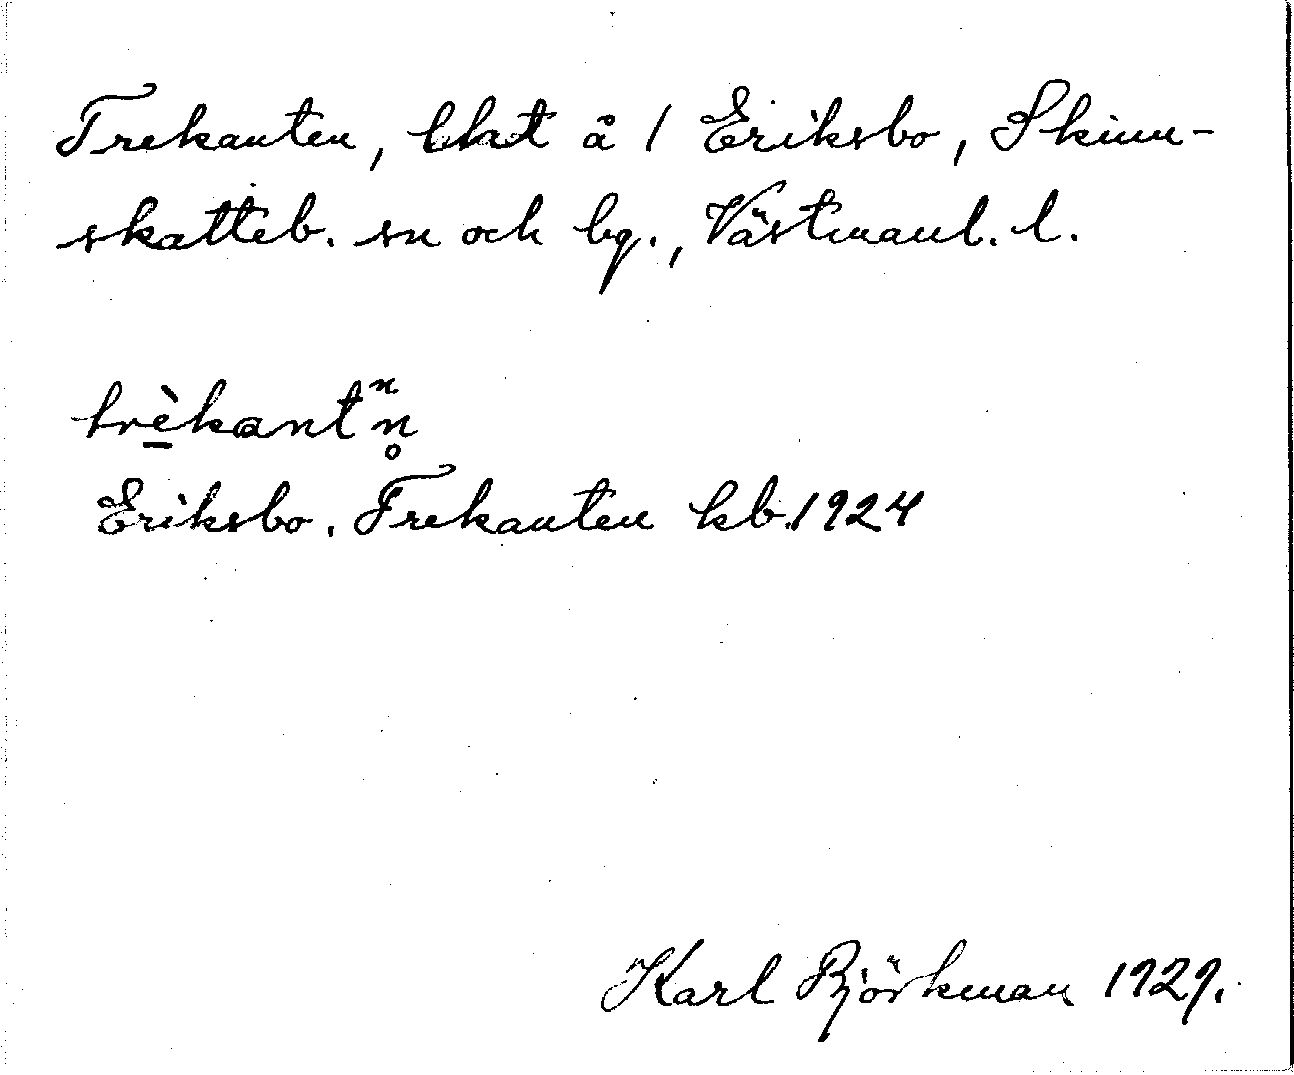 Trekanten, lht å 1 Eriksbo, Skinn-
skatteb. sn och bg., Västmanl. l.
trèkantⁿn̥
Eriksbo. Trekanten kb. 1924
Karl Björkman 1929.